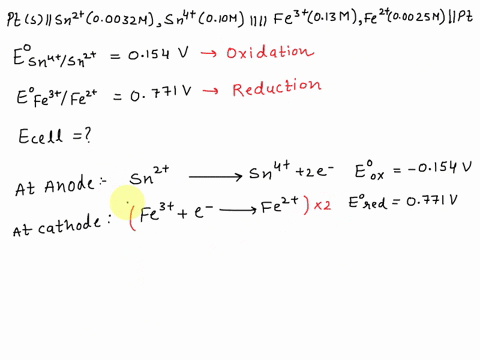 Pt(s)||Sn²⁺(0.0032M),Sn⁴⁺(0.10M)||||Fe³⁺(0.13M),Fe²⁺(0.0025M)||Pt
E⁰Sn⁴⁺/Sn²⁺ = 0.154 V → Oxidation
E⁰Fe³⁺/Fe²⁺ = 0.771V → Reduction
Ecell = ?
At Anode:- Sn²⁺ ⟶ Sn⁴⁺+2e⁻ E⁰ox = -0.154 V
At cathode: (Fe³⁺+e⁻ ⟶ Fe²⁺)×2 E⁰red = 0.771V